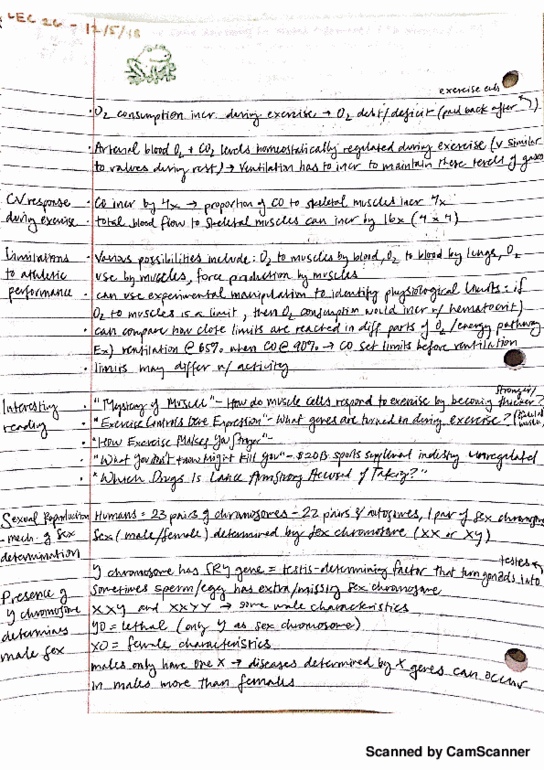 LEC 26 - 12/5/18
exercise ends
· O2 consumption incr. during exercise → O2 debt/deficit (paid back after
· Arterial blood O2 + CO2 levels homeostatically regulated during exercise (v similar
to values during rest) → Ventilation has to incr to maintain these levels of gases
CV response
during exercise
· CO incr by 4x → proportion of CO to skeletal muscles incr 4x
· total blood flow to skeletal muscles can incr by 16x (4 x 4)
Limitations
to athletic
performance
· Various possibilities include: O2 to muscles by blood, O2 to blood by lungs, O2
use by muscles, force production by muscles
· can use experimental manipulation to identify physiological limits: if
O2 to muscles is a limit, then O2 consumption would incr w/ hematocrit)
· can compare how close limits are reached in diff parts of O2/energy pathway
Ex) ventilation @ 65% when CO @ 90% → CO set limits before ventilation
· limits may differ w/ activity
Interesting
reading
· "Mystery of Muscle" - How do muscle cells respond to exercise by becoming stronger/
thicker?
· "Exercise Controls Gene Expression" - What genes are turned on during exercise?
· "How Exercise Makes You
· "What You Don't Know Might Kill You" - $20B sports supplement industry unregulated
· "Which Drugs is Lance Armstrong Accused of Taking?"
Sexual Reproduction
- mech. of sex
determination
Humans = 23 pairs of chromosomes - 22 pairs of autosomes, 1 pair of sex chromosomes
Sex (male/female) determined by sex chromosome (XX or XY)
Presence of
Y chromosome
determines
male sex
Y chromosome has SRY gene = testis-determining factor that turn gonads into testes
sometimes sperm/egg has extra/missing sex chromosome
XXY and XXYY → some male characteristics
YO = lethal (only Y as sex chromosome)
XO = female characteristics
males only have one X → diseases determined by X genes can occur
in males more than females
Scanned by CamScanner